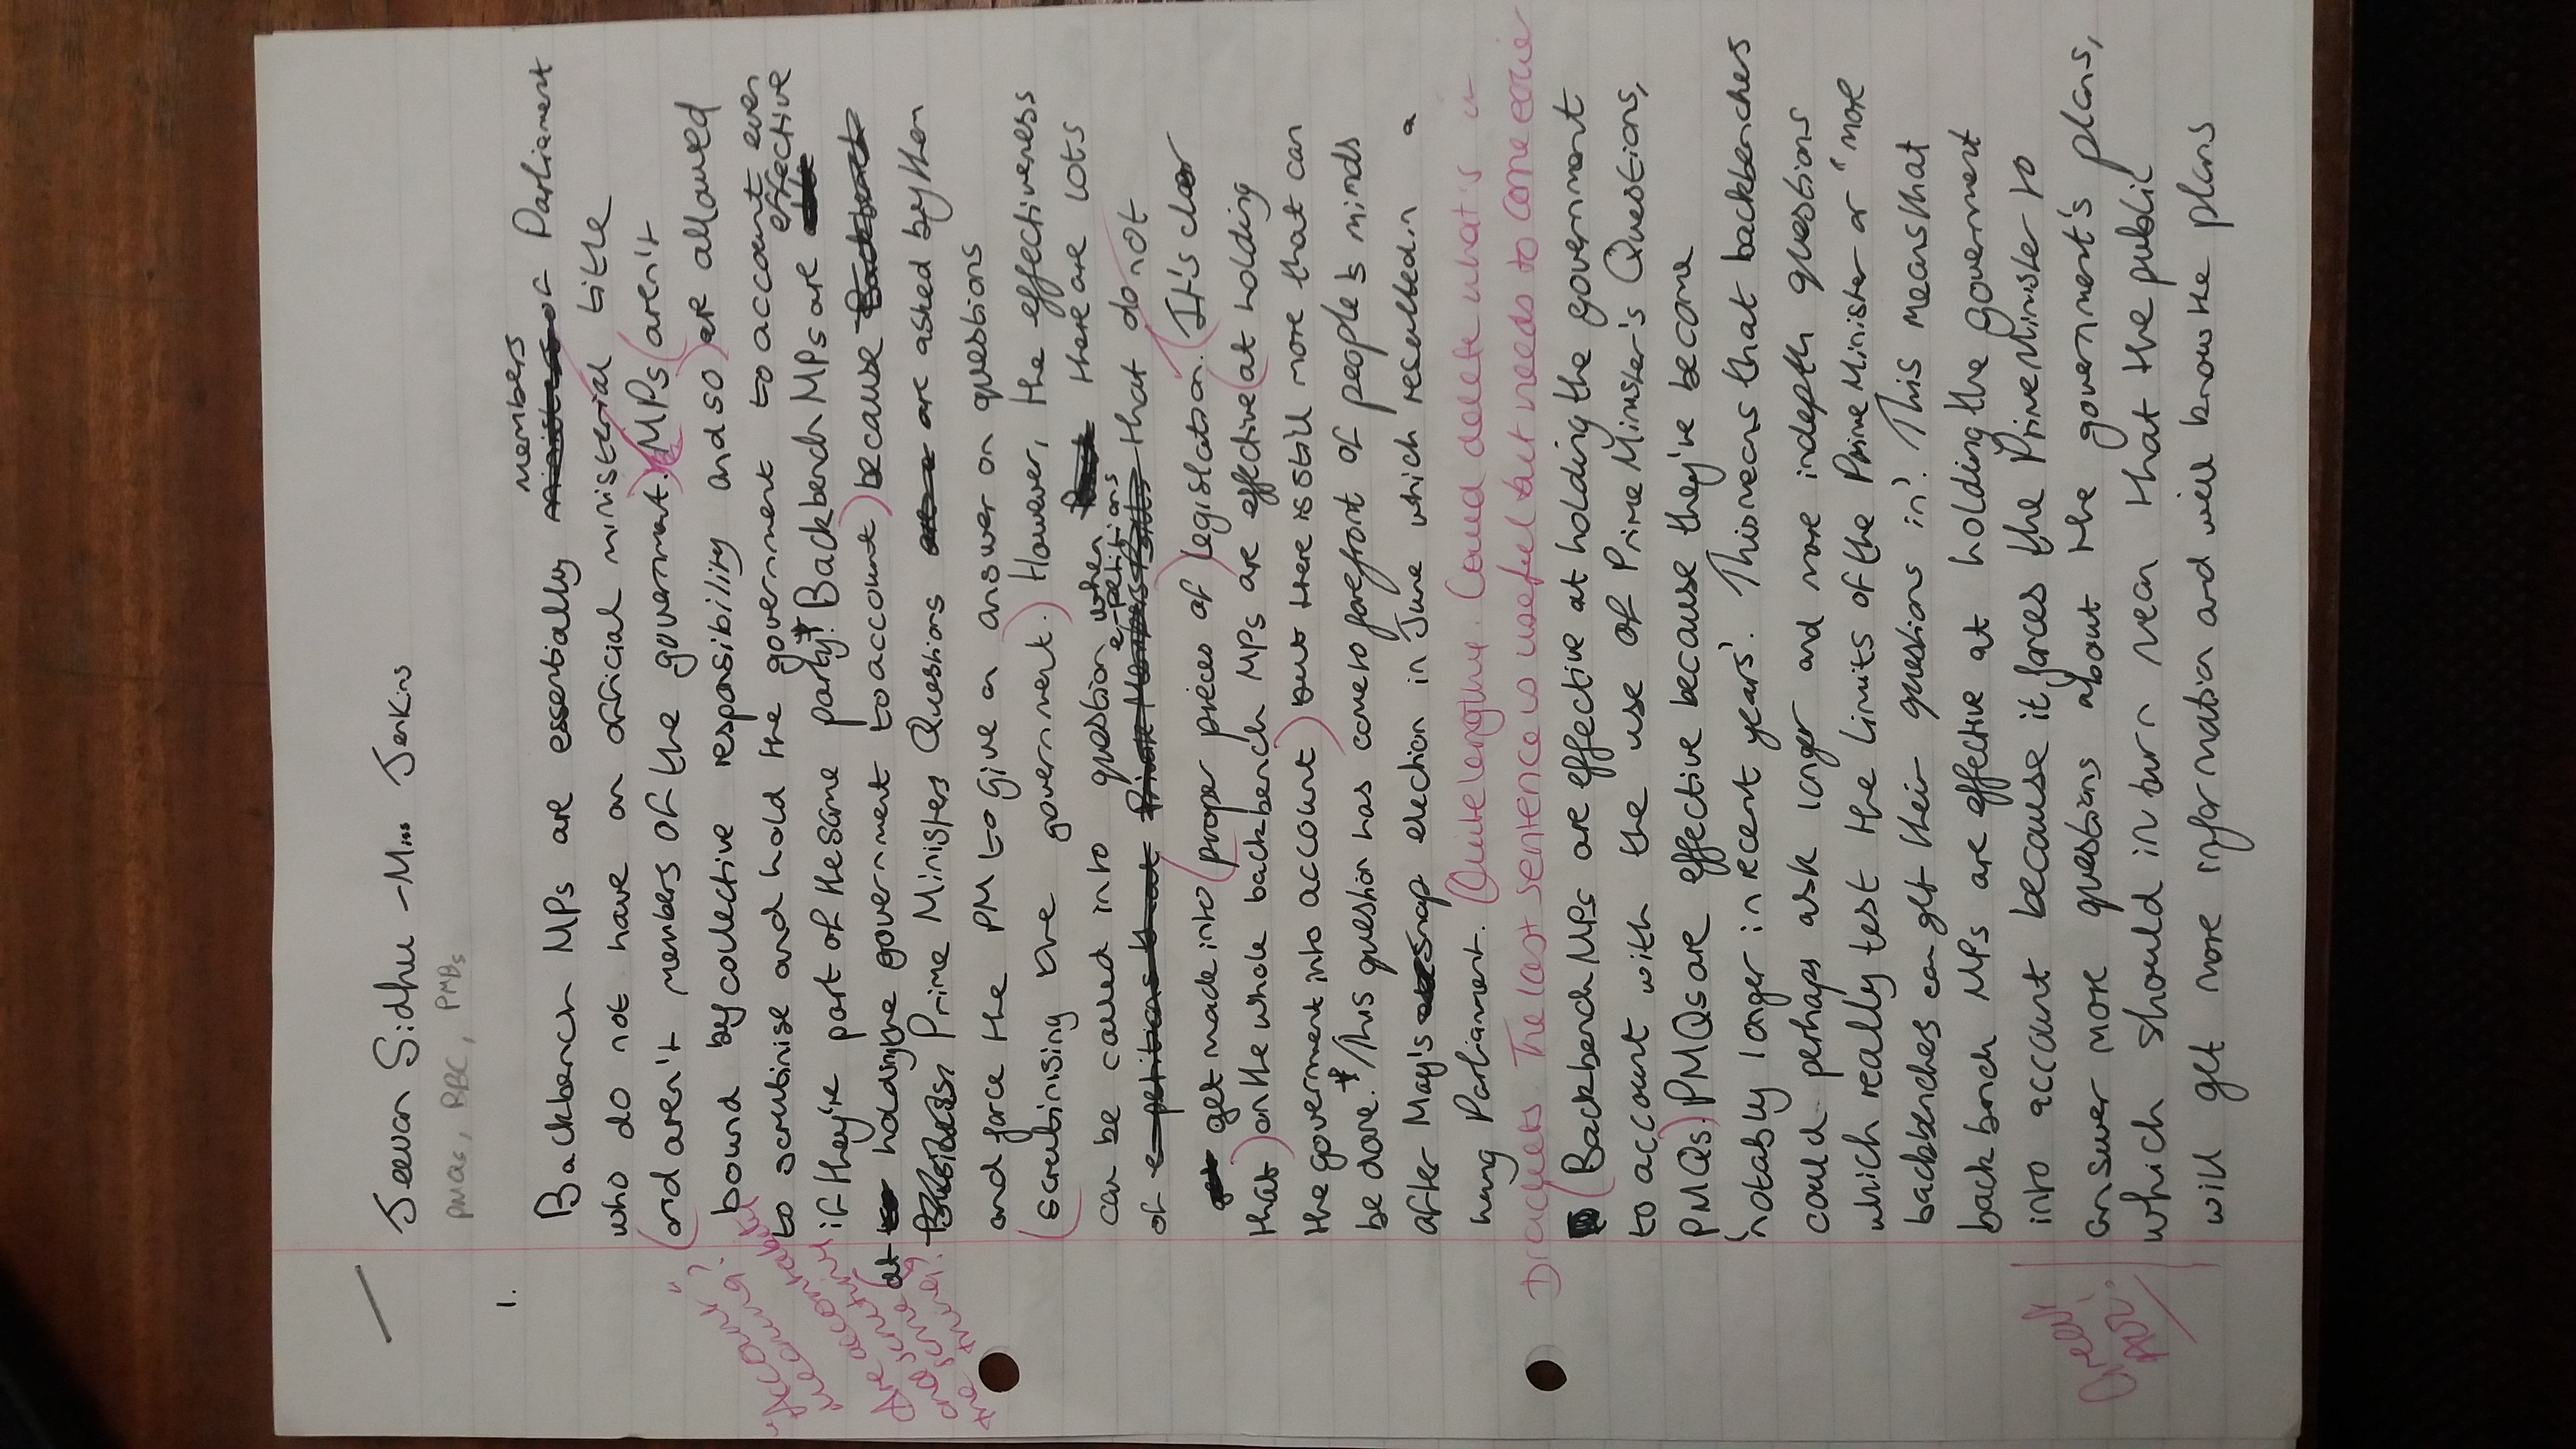 Jeevan Sidhu - M... Jenkins
PMQs, BBC, PMBs
1.
members
Backbench MPs are essentially of Parliament
who do not have an official ministerial title
(and aren't members of the government.) (MPs (aren't
bound by collective responsibility and so) are allowed
to scrutinise and hold the government to account even
if they're part of the same party.* Backbench MPs are effective
at holding the government to account) because
Prime Ministers Questions are asked by them
and force the PM to give an answer on questions
(scrutinising the government.) However, the effectiveness
can be called into question when there are lots
of e-petitions that do not
get made into (proper pieces of) legislation. (It's clear
that) on the whole backbench MPs are effective (at holding
the government into account) but there is still more that can
be done.* This question has come to forefront of people's minds
after May's snap election in June which resulted in a
hung Parliament. (Quite lengthy. Could delete what's in
brackets. The last sentence is useful but needs to come earlier
(Backbench MPs are effective at holding the government
to account with the use of Prime Minister's Questions,
PMQs.) PMQs are effective because they've become
'notably longer in recent years'. This means that backbenches
could perhaps ask longer and more indepth questions
which really test the limits of the Prime Minister or "more
backbenches can get their questions in'. This means that
backbench MPs are effective at holding the government
into account because it forces the Prime Minister to
answer more questions about the government's plans,
which should in turn mean that the public
will get more information and will know the plans
"Account"?
Are
and
the
the